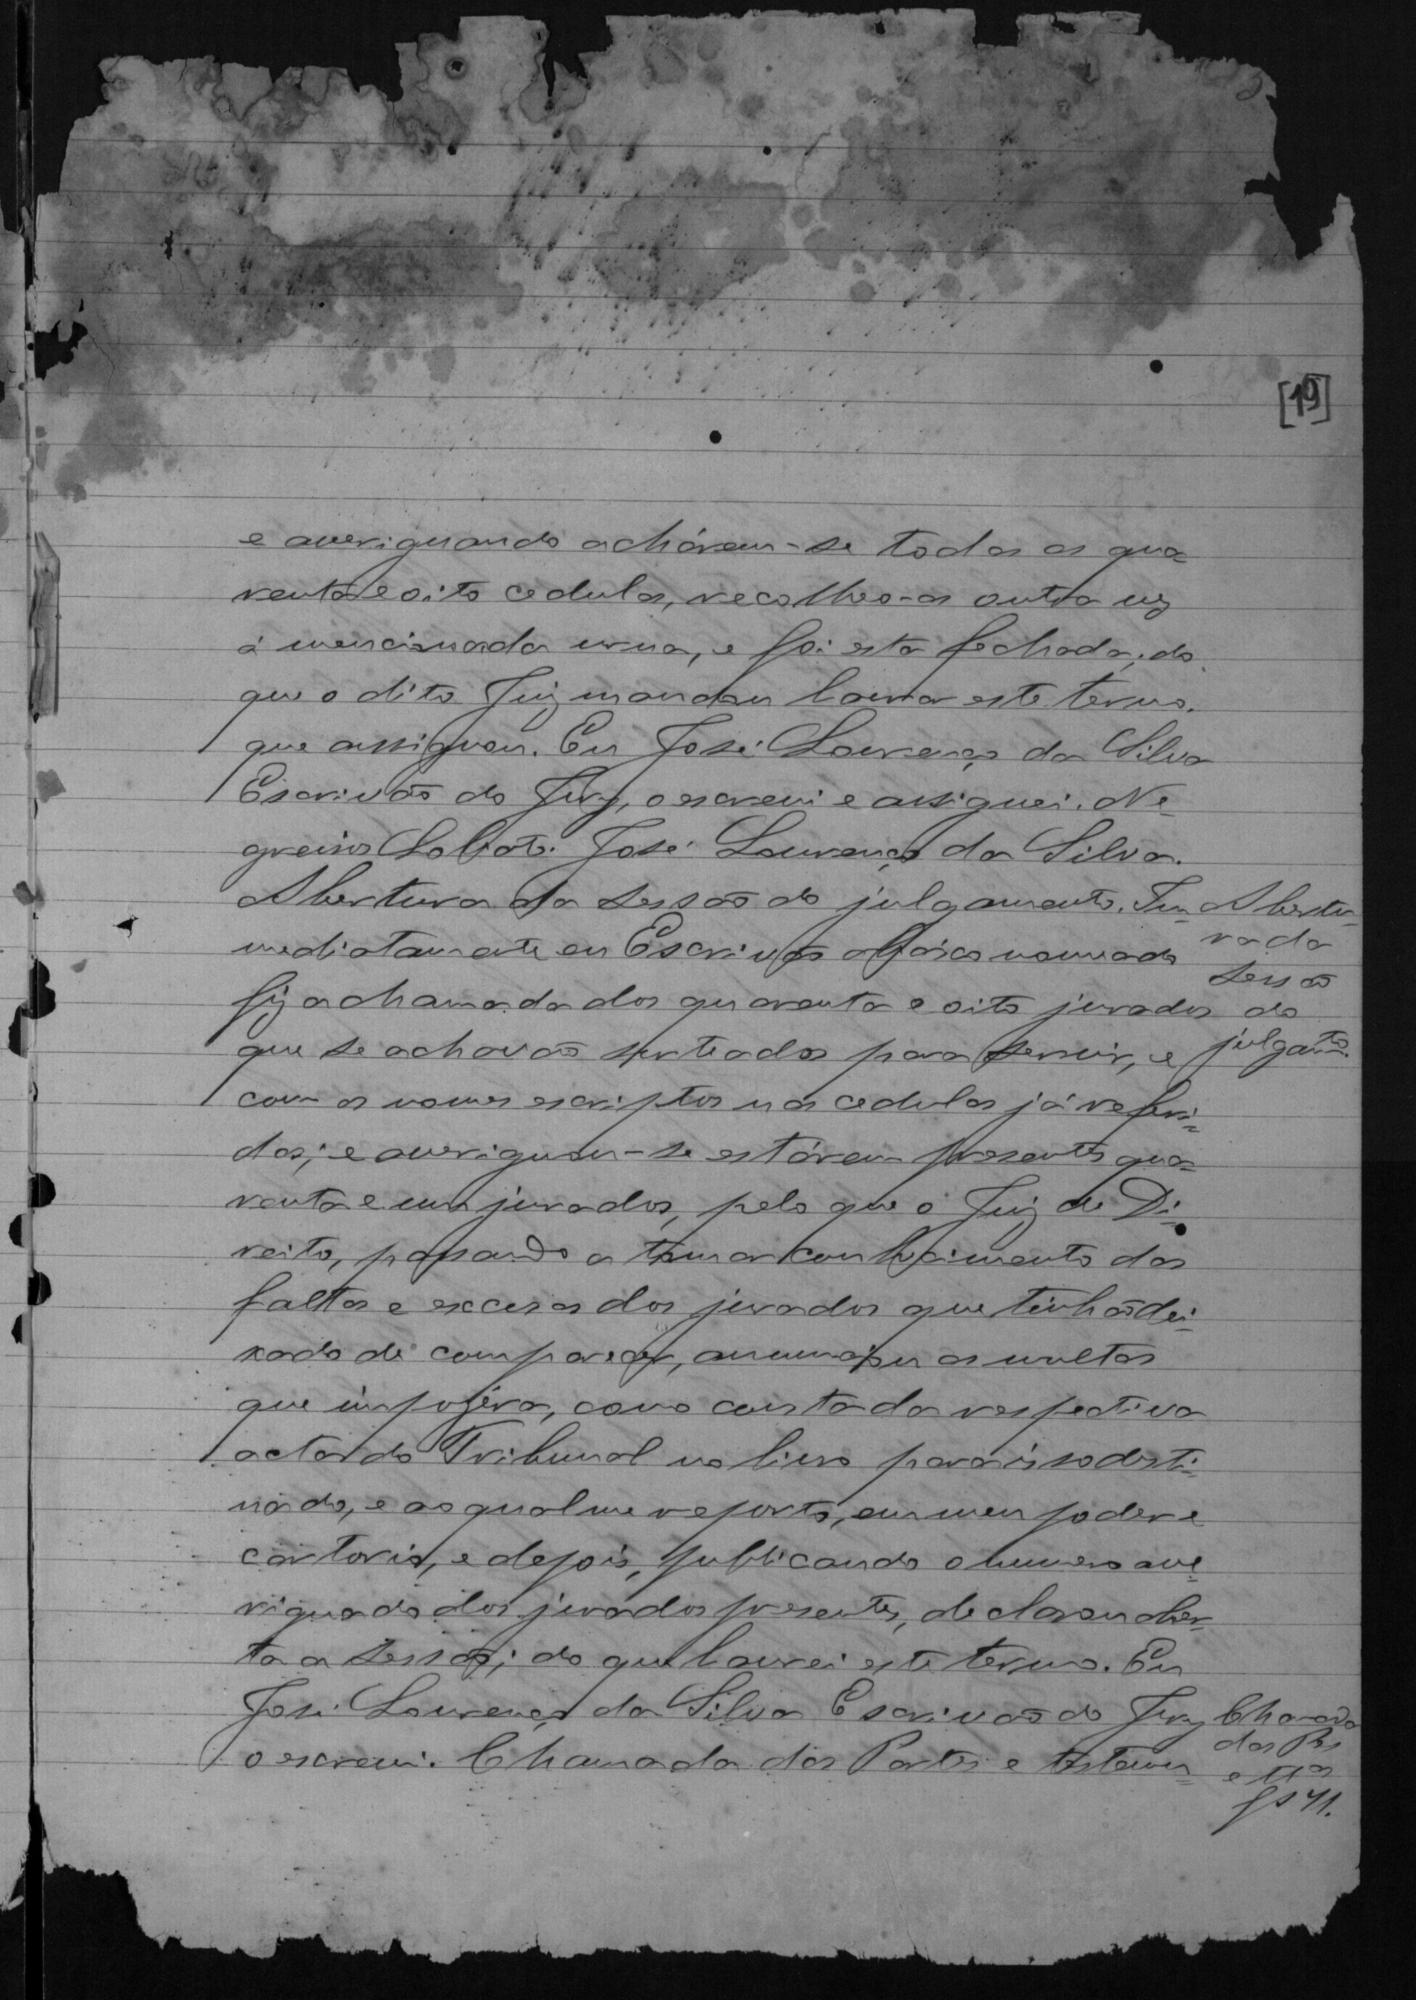 [19]
e averiguando achárem-se todas as qua=
renta e oito cedulas, recolheo-as outra vez
á mencionada urna, e foi esta fechada; do
que o dito Juiz mandou lavrar este termo.
que assignou. Eu José Lourenço da Silva
Escrivão do Jury, o escrevi e assignei. Ne=
greiros Lobato. José Lourenço da Silva.
Abertura da Sessão do julgamento. Im=
mediatamente eu Escrivão abaixo nomeado
fiz a chamada dos quarenta e oito jurados
que se achavão sorteados para servir, e
com os nomes escriptos nas cedulas já referi=
das; e averiguou-se estárem presentes qua=
renta e um jurados, pelo que o Juiz de Di=
reito, passando a tomar conhecimento das
faltas e escusas dos jurados que tinhão dei=
xado de comparecer, annunciou as multas
que impozéra, como consta da respectiva
acta do Tribunal no livro para isso desti=
nado, e ao qual me reporto, em meu poder e
cartorio, e depois, publicando o numero ave=
riguado dos jurados presentes, declarou aber=
ta a Sessão; do que lavrei este termo. Eu
José Lourenço da Silva Escrivão do Jury
o escrevi. Chamada das Partes e testemu=
Abertu=
ra da
Sessão
do
julgamto.
Chamada
das Pes
e ttas
fs 41.